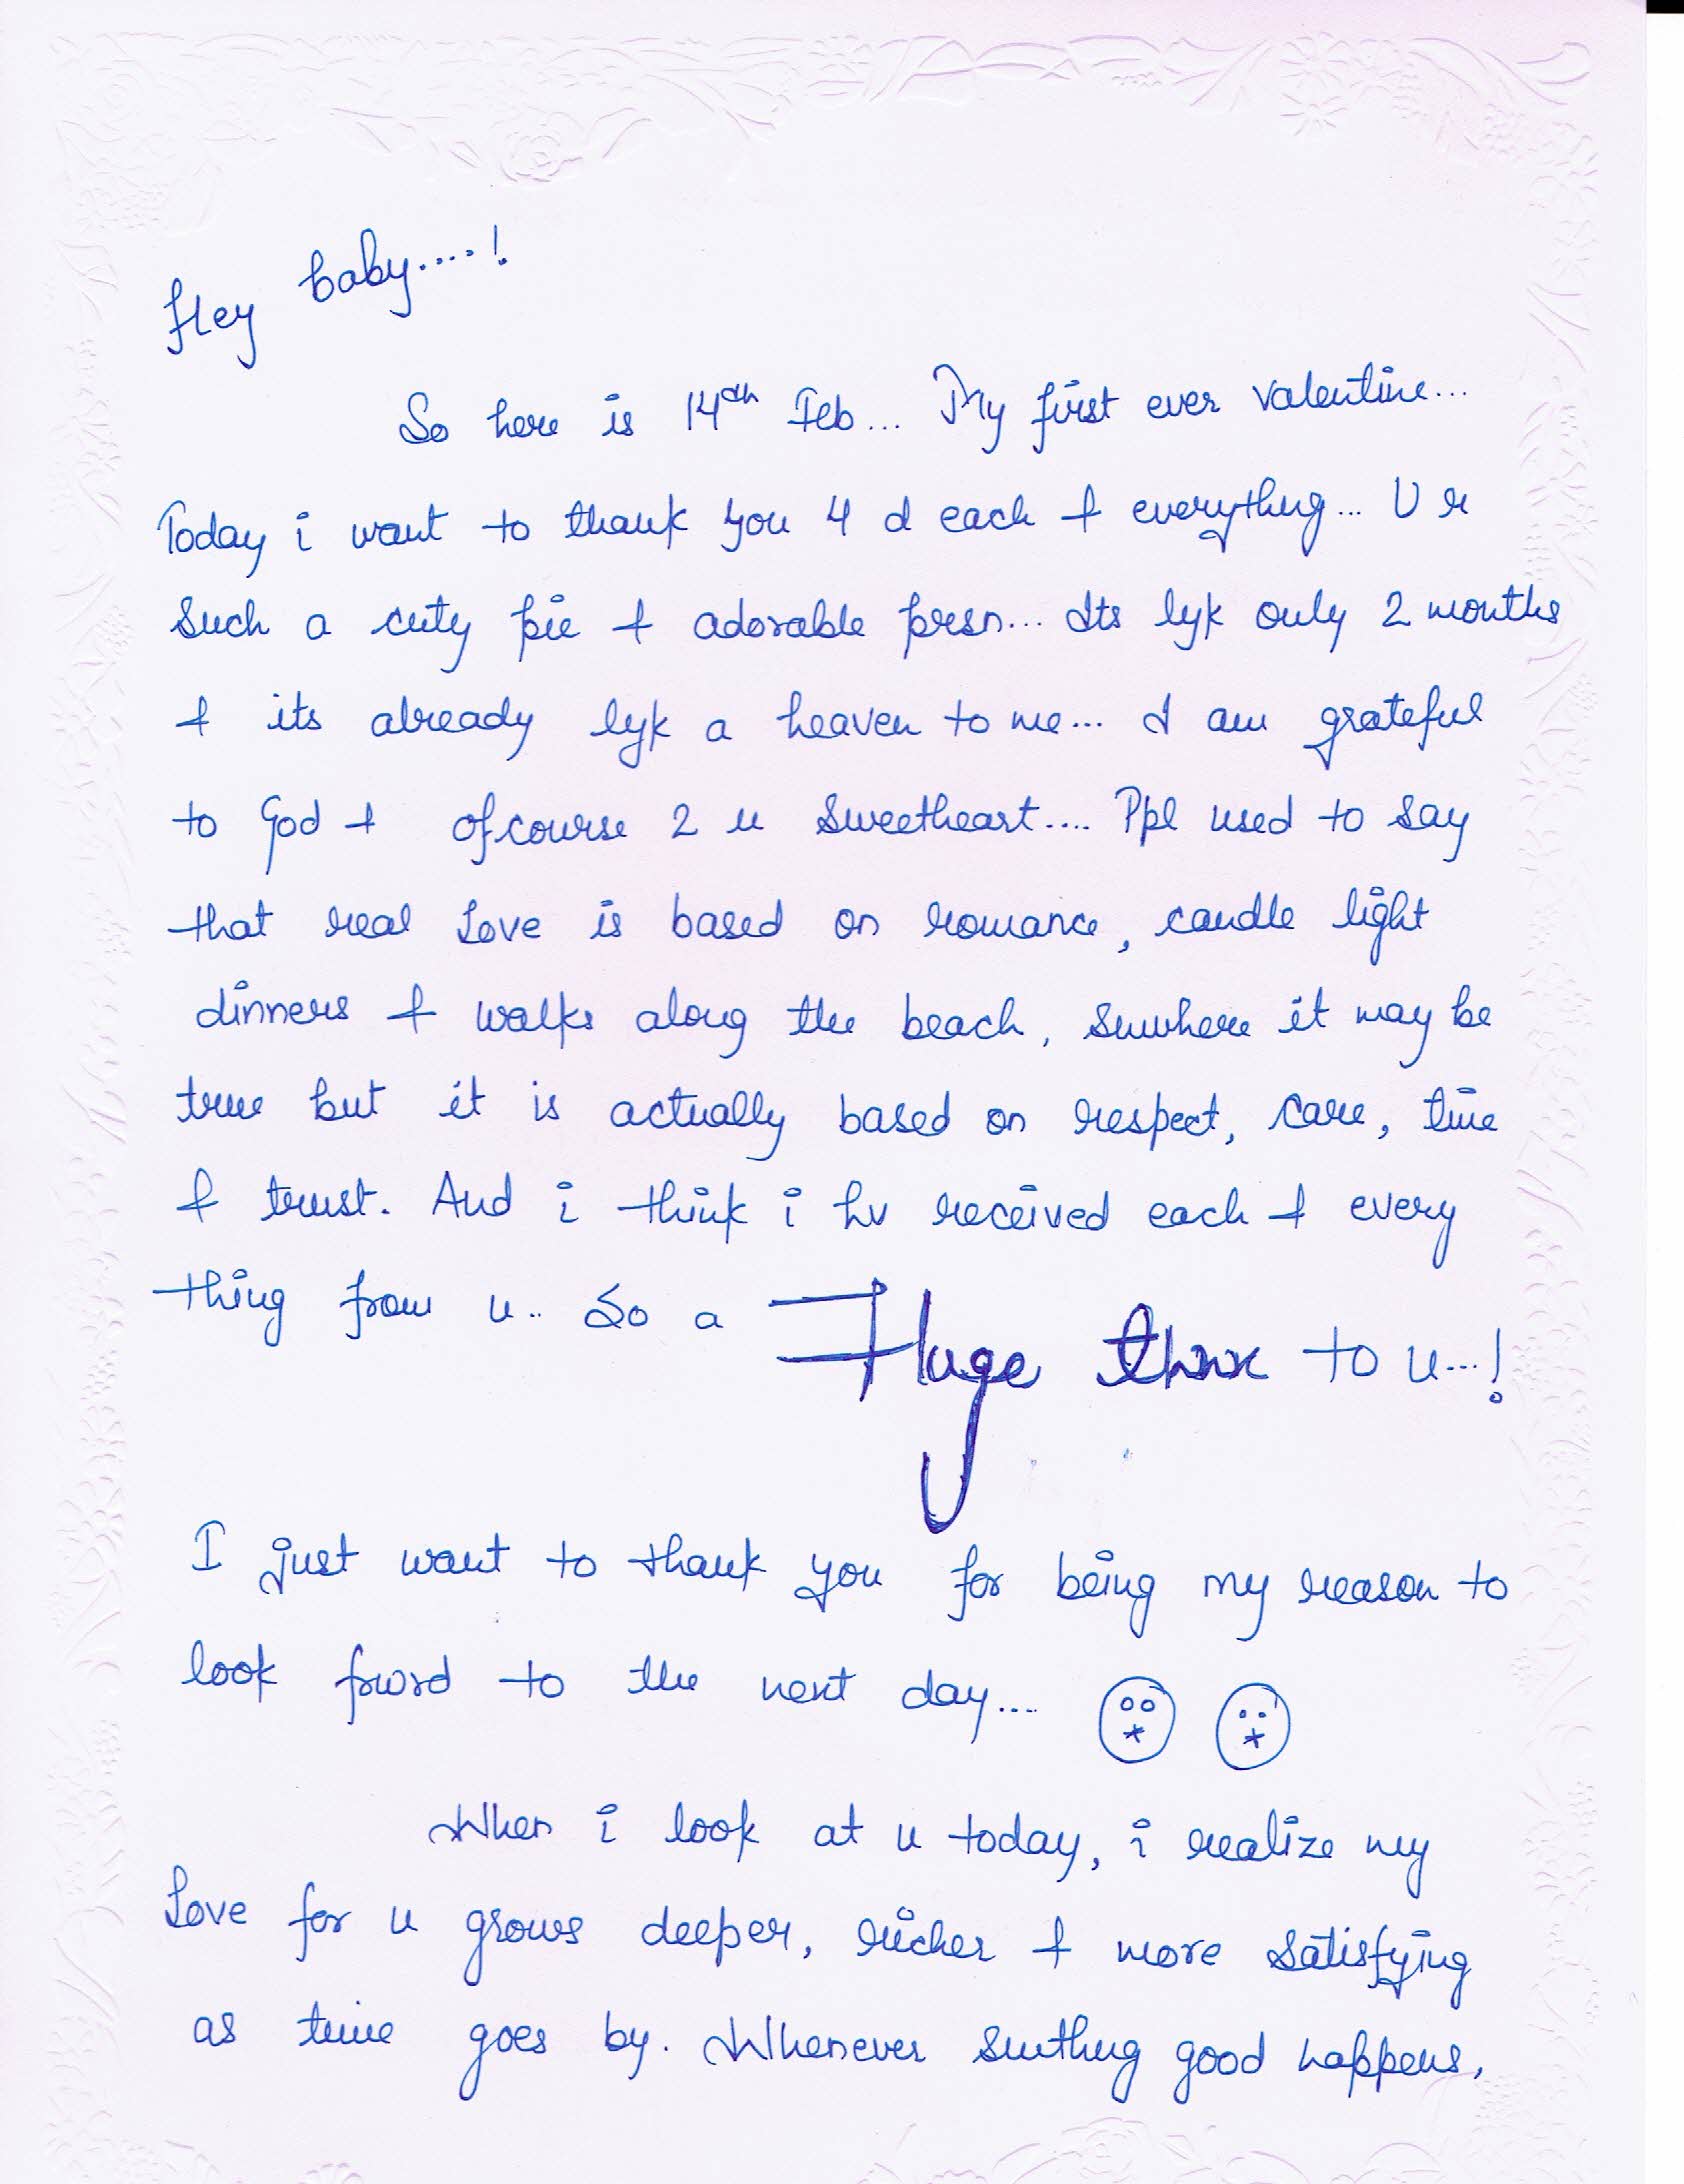 Hey baby....!
So here is 14th Feb... My first ever valentine...
Today i want to thank you 4 d each & everythng... U r
such a cuty pie & adorable presn... Its lyk only 2 months
& its already lyk a heaven to me... I am grateful
to God & ofcourse 2 u sweetheart.... Ppl used to say
that real Love is based on romance, candle light
dinners & walks along the beach, smwhere it may be
true but it is actually based on respect, care, time
& trust. And i think i hv received each & every
thing from u.. So a Huge thnx to u...!
I just want to thank you for being my reason to
look frword to the next day...
When i look at u today, i realize my
Love for u grows deeper, richer & more satisfying
as time goes by. Whenever smthng good happens,